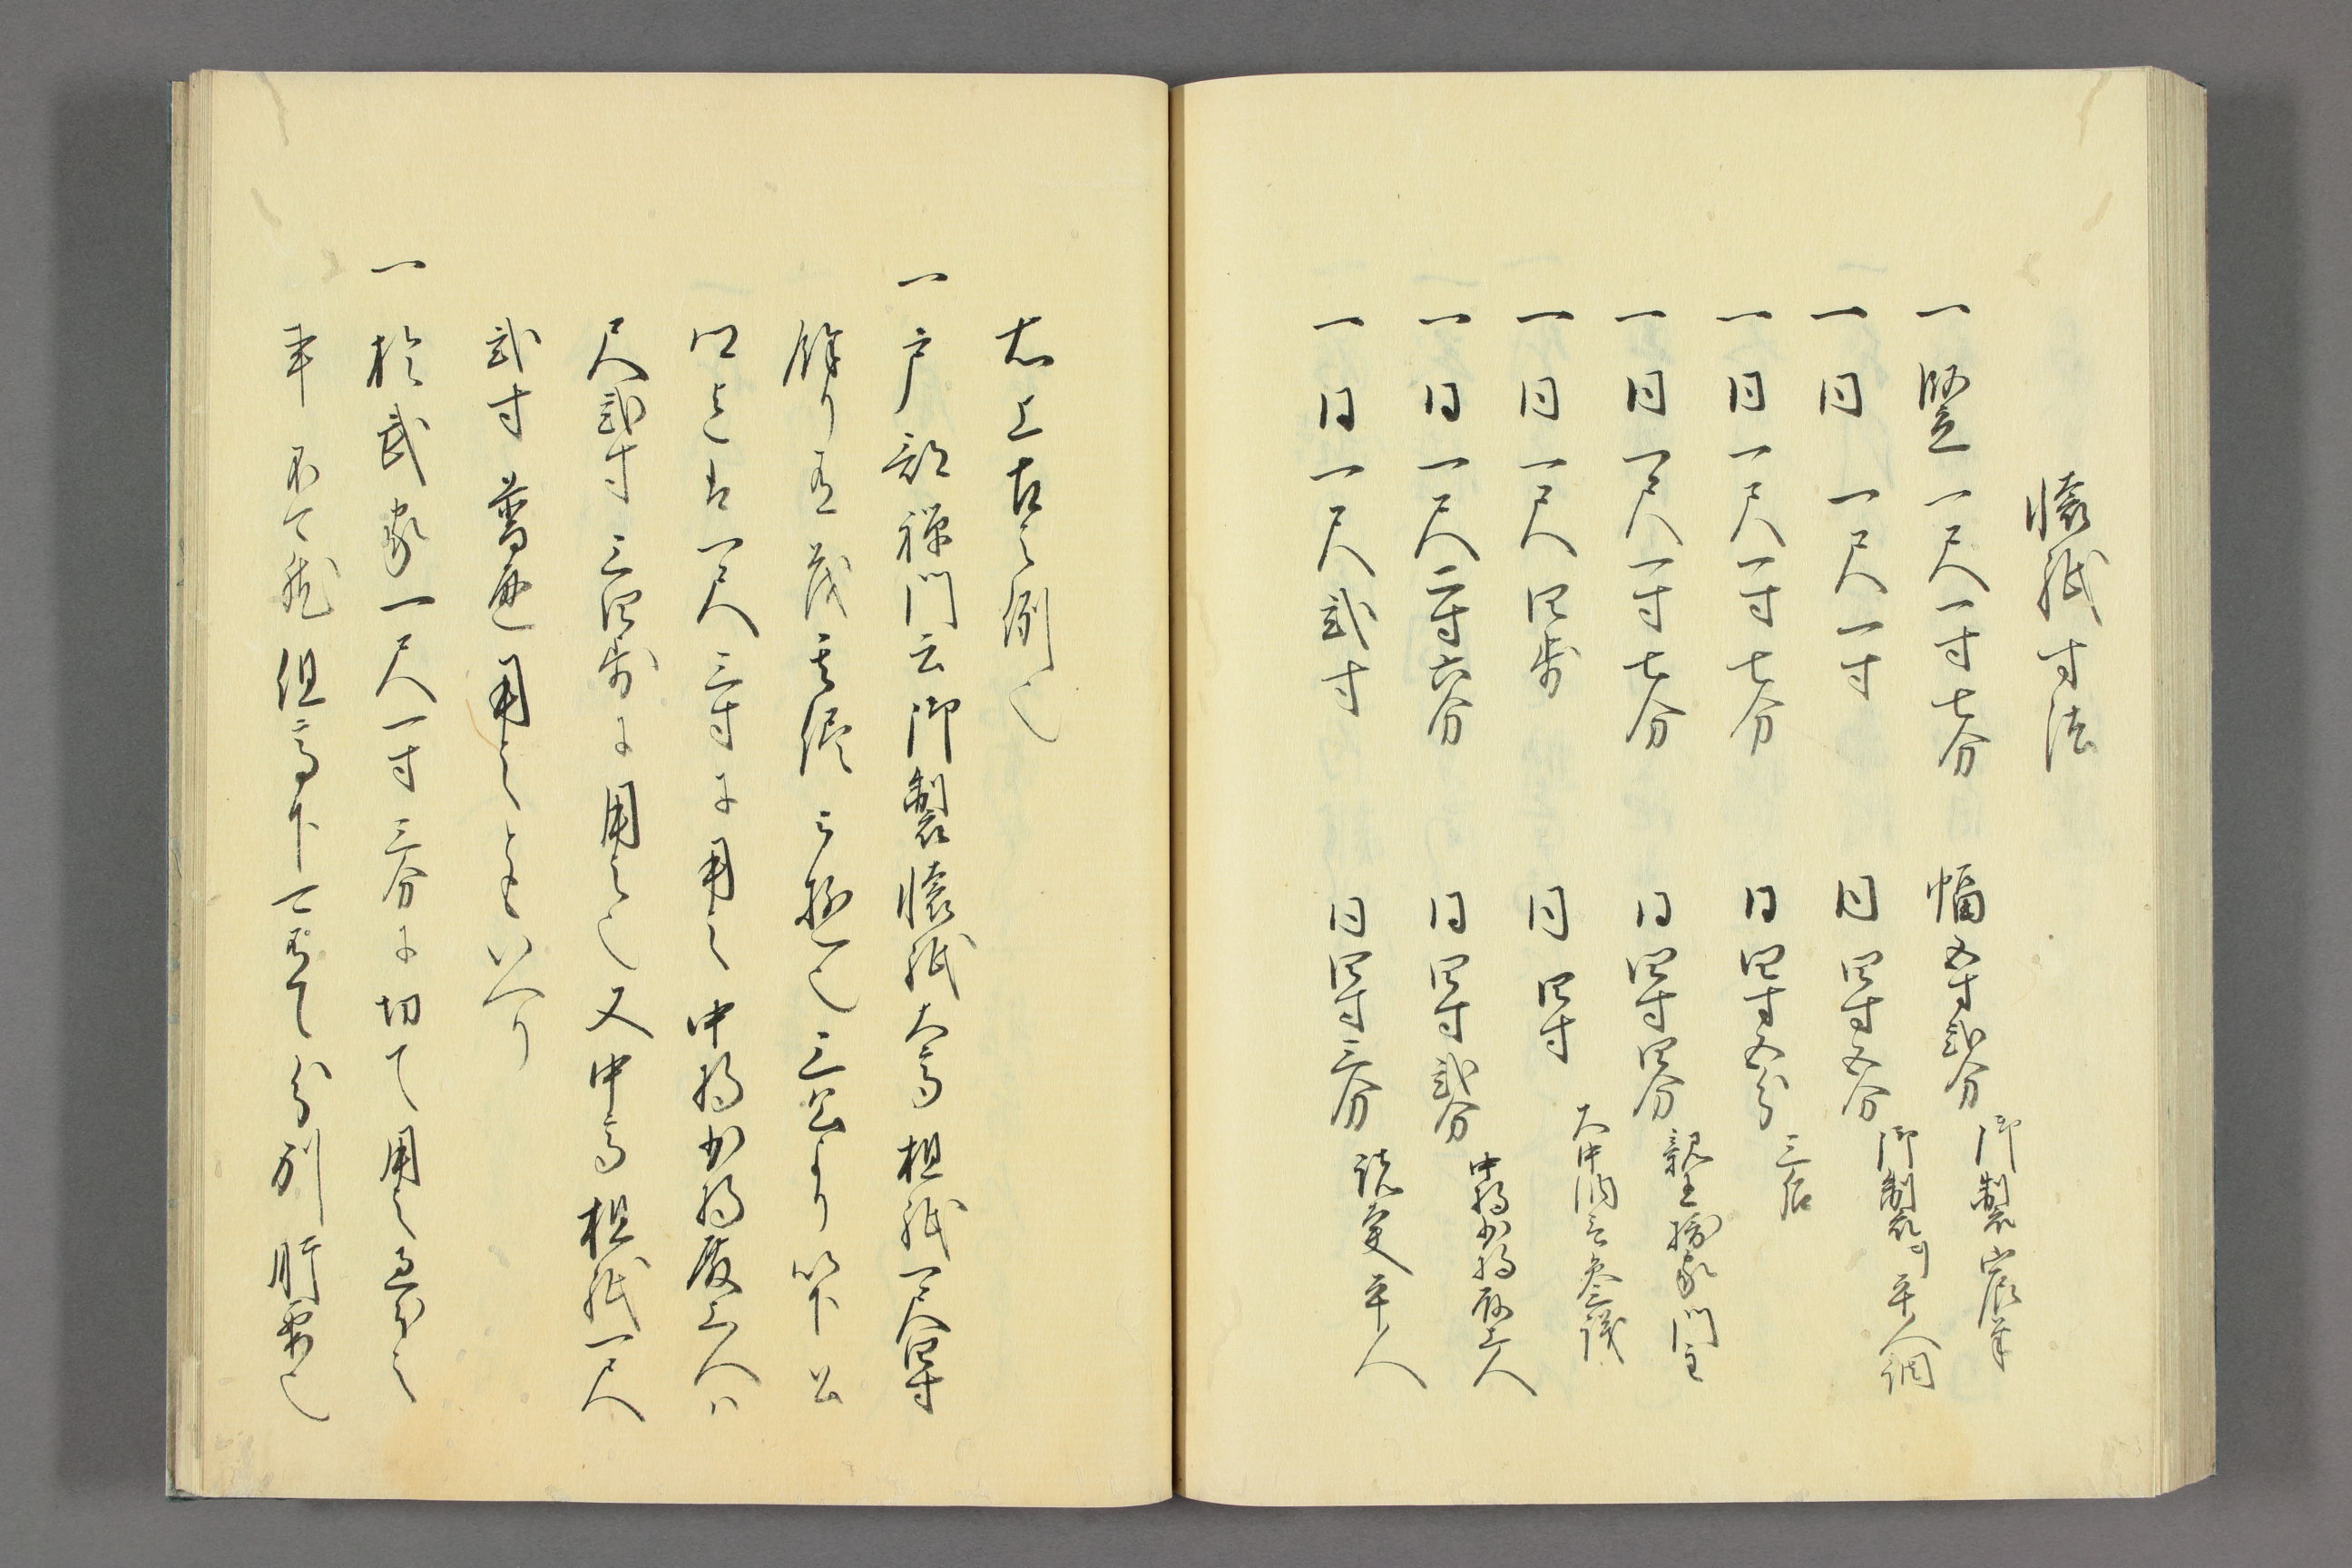 懐紙寸法
一竪一尺一寸七分 幅五寸弐分 御製宸筆
一同 一尺一寸 同四寸五分 御製 平人調
一同一尺一寸七分 同四寸五分 三后
一同一尺一寸七分 同四寸四分 親王摂家門主
一同一尺四歩 同四寸 大中納言参議
一同一尺二寸六分 同四寸弐分 中将少将殿上人
一同一尺弐寸 同四寸三分 諸平人
右上古之例也
一戸部禅門云御製懐紙大高檀紙一尺四寸
餘り 三公より以下公
一尺三寸に用之中将少将殿上人ハ
尺弐寸三四歩に用之也又中高檀紙一尺
弐寸普通用之ともいへり
一於武家一尺一寸三分に切て用之
事不可然但高下 分別肝要也